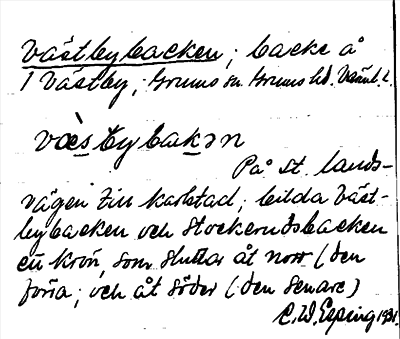 Västbybacken; backe å
1 Västby, Grums sn Grums hd. Värml. l.
væ̀stbybakən
På st. lands-
vägen till Karlstad, bilda Väst-
bybacken och Stockerudsbacken
en krön, som sluttar åt norr (den
förra; och åt söder (den senare)
C.W. Esping 1931.